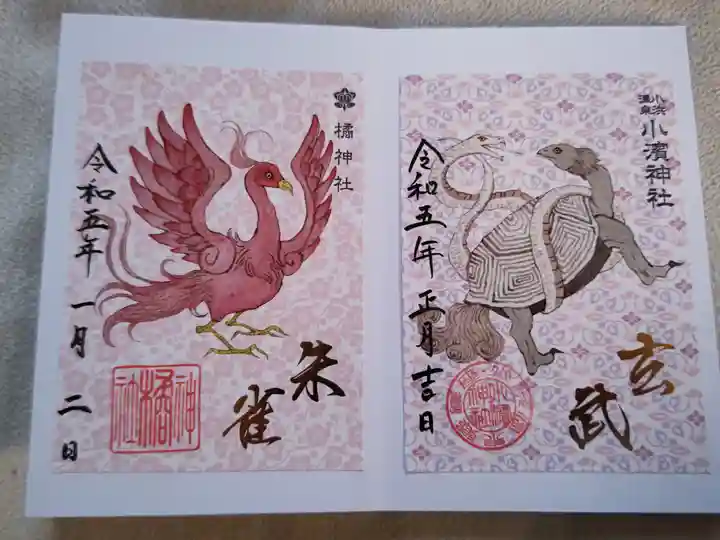 橘神社
令和五年 一月 二日
朱雀
神橘社
小浜温泉
小濱神社
令和五年 正月吉日
玄武